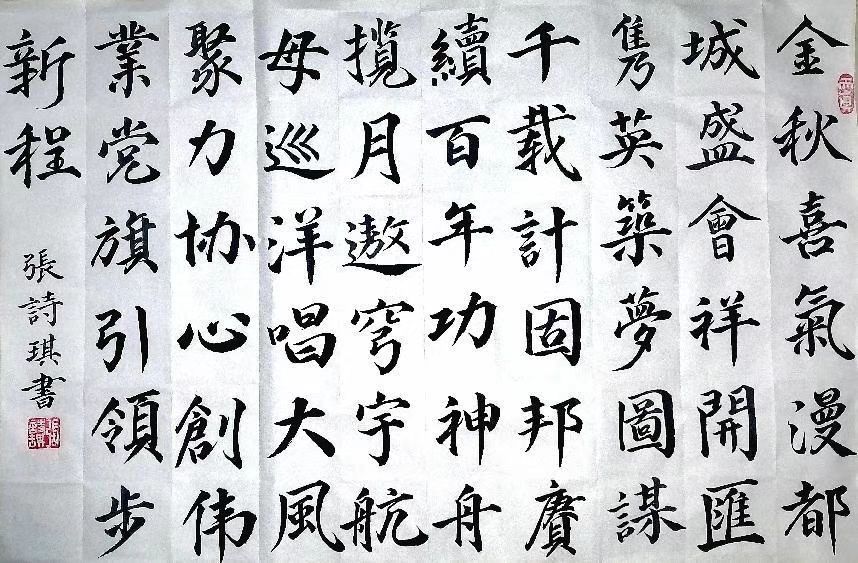 金秋喜氣漫都
城盛會祥開匯
雋英築夢圖謀
千载計固邦賡
續百年功神舟
揽月遨穹宇航
母巡洋唱大風
聚力协心創伟
業党旗引領步
新程
張詩琪書